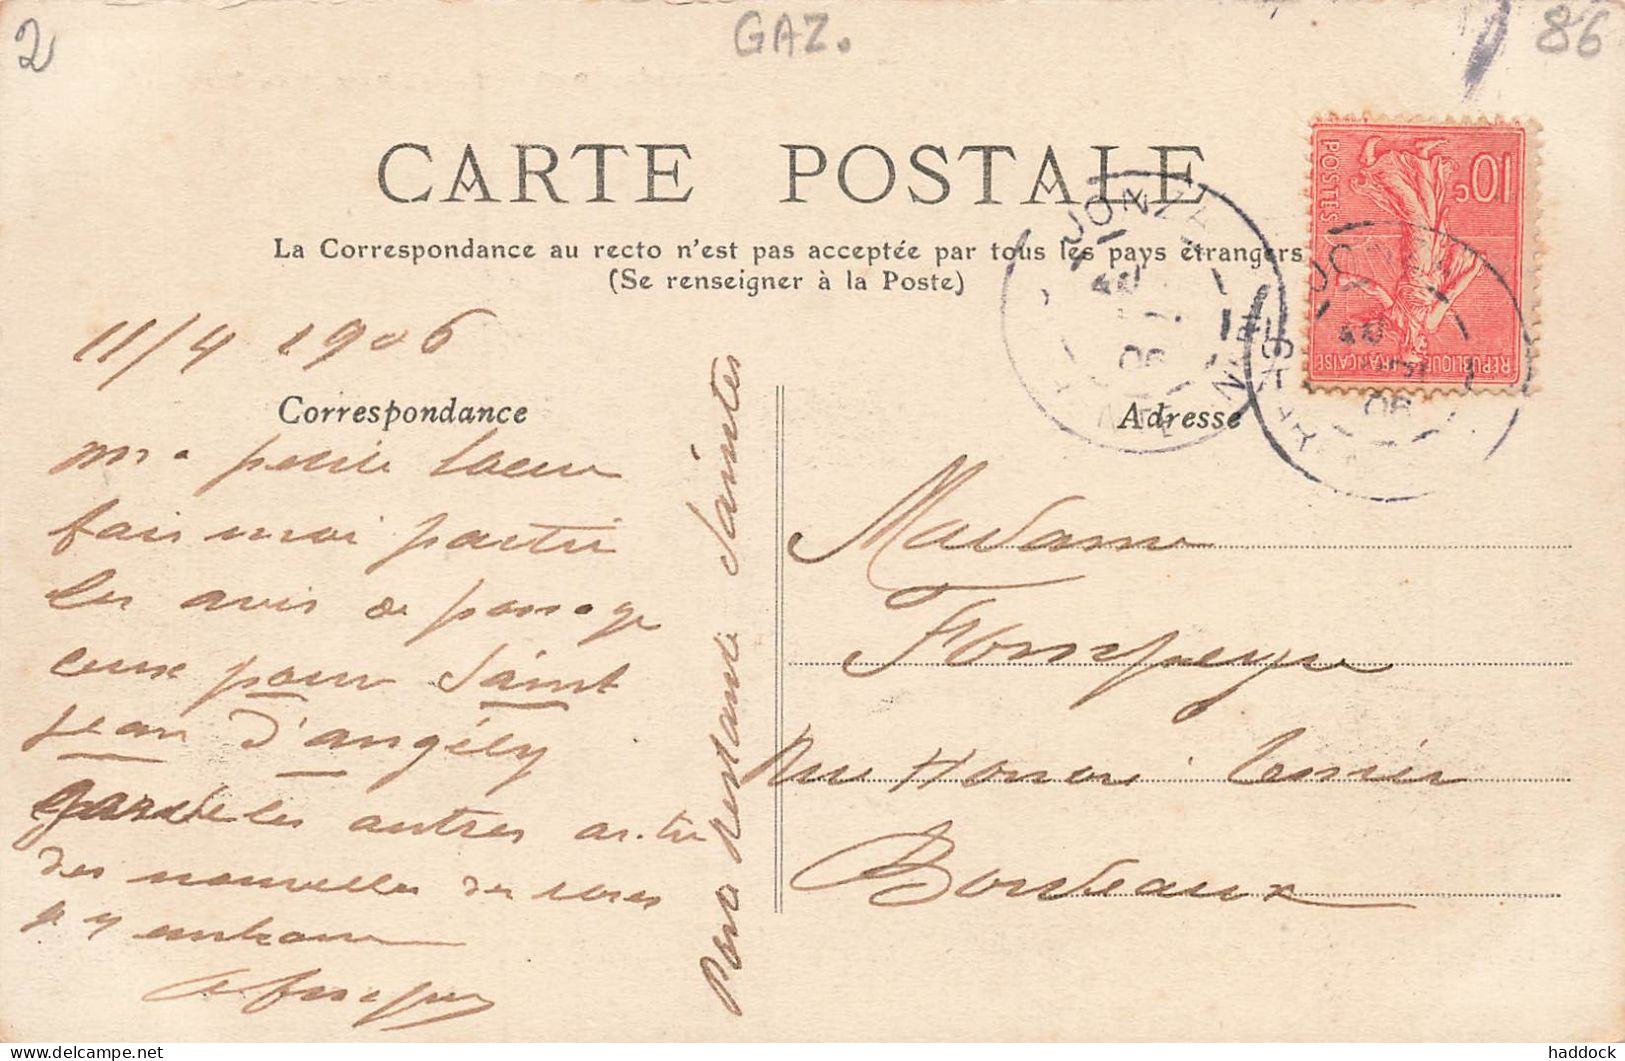 2
GAZ.
86
CARTE POSTALE
La Correspondance au recto n'est pas acceptée par tous les pays étrangers
(Se renseigner à la Poste)
10c
POSTES
REPUBLIQUE FRANÇAISE
JONZA
06
JO
06
11/4 1906
Correspondance
Adresse
ma petite
fais moi partir
les avis de passage
ceux pour Saint
Jean d'angély
garde les autres as-tu
des nouvelles de
Poste Restante Saintes
Madame
Fompeyre
Rue Honoré Tessier
Bordeaux
haddock
delcampe.net